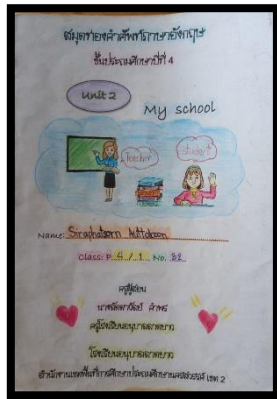 สมุดท่องคำศัพท์ภาษาอังกฤษ
ชั้นประถมศึกษาปีที่ 4
Unit 2
My school
Teacher
Student
Name: Siraphatsorn
Class: P. 4 / 1 No. 32
ครูผู้สอน
ครูโรงเรียนอนุบาลลาดยาว
โรงเรียนอนุบาลลาดยาว
สำนักงานเขตพื้นที่การศึกษาประถมศึกษานครสวรรค์ เขต 2